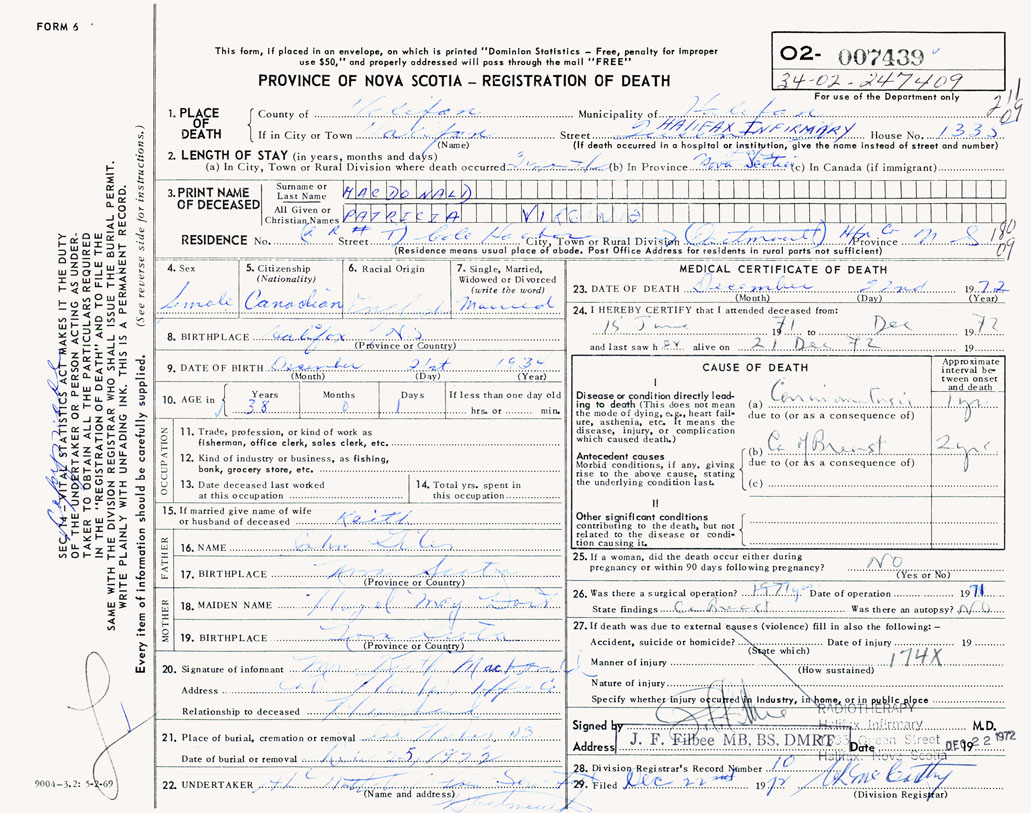 FORM 6
This form, if placed in an envelope, on which is printed "Dominion Statistics – Free, penalty for improper
use $50," and properly addressed will pass through the mail "FREE"
PROVINCE OF NOVA SCOTIA – REGISTRATION OF DEATH
02- 007439
34-02-247409
For use of the Department only
211
09
1. PLACE OF DEATH
County of Halifax Municipality of Halifax
If in City or Town Halifax Street HALIFAX INFIRMARY House No. 1335
(Name) (If death occurred in a hospital or institution, give the name instead of street and number)
2. LENGTH OF STAY (in years, months and days)
(a) In City, Town or Rural Division where death occurred (b) In Province Nova Scotia (c) In Canada (if immigrant)
3. PRINT NAME OF DECEASED
Surname or Last Name MACDONALD
All Given or Christian Names PATRICIA VIRGINIA
RESIDENCE No. R R # 1 Street Cole Harbor City, Town or Rural Division (Dartmouth) Hfx Co Province N S
180
09
(Residence means usual place of abode. Post Office Address for residents in rural parts not sufficient)
4. Sex
female
5. Citizenship
(Nationality)
Canadian
6. Racial Origin
7. Single, Married,
Widowed or Divorced
(write the word)
Married
8. BIRTHPLACE Halifax NS
(Province or Country)
9. DATE OF BIRTH December 21st 1934
(Month) (Day) (Year)
10. AGE in
Years 38
Months 0
Days 1
If less than one day old
hrs. or min.
OCCUPATION
11. Trade, profession, or kind of work as
fisherman, office clerk, sales clerk, etc.
12. Kind of industry or business, as fishing,
bank, grocery store, etc.
13. Date deceased last worked
at this occupation
14. Total yrs. spent in
this occupation
15. If married give name of wife
or husband of deceased Keith
FATHER
16. NAME John Giles
17. BIRTHPLACE Nova Scotia
(Province or Country)
MOTHER
18. MAIDEN NAME Hazel May
19. BIRTHPLACE Nova Scotia
(Province or Country)
20. Signature of informant Mr. Keith MacDonald
Address Hfx Co
Relationship to deceased Husband
21. Place of burial, cremation or removal NS
Date of burial or removal Dec 25, 1972
22. UNDERTAKER
(Name and address)
Dartmouth
MEDICAL CERTIFICATE OF DEATH
23. DATE OF DEATH December 22nd 1972
(Month) (Day) (Year)
24. I HEREBY CERTIFY that I attended deceased from:
15 June 1971 to Dec 1972
and last saw her alive on 21 Dec 72 19
CAUSE OF DEATH
Approximate
interval be-
tween onset
and death
I
Disease or condition directly lead-
ing to death (This does not mean
the mode of dying, e.g., heart fail-
ure, asthenia, etc. It means the
disease, injury, or complication
which caused death.)
(a) Carcinomatosis 1 yr.
due to (or as a consequence of)
Antecedent causes
Morbid conditions, if any, giving
rise to the above cause, stating
the underlying condition last.
(b) Ca of Breast 2 yrs
due to (or as a consequence of)
(c)
II
Other significant conditions
contributing to the death, but not
related to the disease or condi-
tion causing it.
25. If a woman, did the death occur either during
pregnancy or within 90 days following pregnancy? NO
(Yes or No)
26. Was there a surgical operation? Date of operation 1971
State findings Ca Breast Was there an autopsy? NO
27. If death was due to external causes (violence) fill in also the following:–
Accident, suicide or homicide? Date of injury 19
(State which)
Manner of injury 174X
(How sustained)
Nature of injury
Specify whether injury occurred in Industry, in home, or in public place
RADIOTHERAPY
Signed by J F Filbee Halifax Infirmary M.D.
Address J. F. Filbee MB, BS, DMRT 1335 Queen Street Date DEC 22 1972 19
Halifax, Nova Scotia
28. Division Registrar's Record Number 10
29. Filed Dec 22nd 1972
(Division Registrar)
9004–3.2: 5-2-69
SEC. 14 – VITAL STATISTICS ACT MAKES IT THE DUTY
OF THE UNDERTAKER OR PERSON ACTING AS UNDER-
TAKER TO OBTAIN ALL THE PARTICULARS REQUIRED
IN THE "REGISTRATION OF DEATH" AND TO FILE THE
SAME WITH THE DIVISION REGISTRAR WHO SHALL ISSUE THE BURIAL PERMIT.
WRITE PLAINLY WITH UNFADING INK. THIS IS A PERMANENT RECORD.
Every item of information should be carefully supplied. (See reverse side for instructions.)